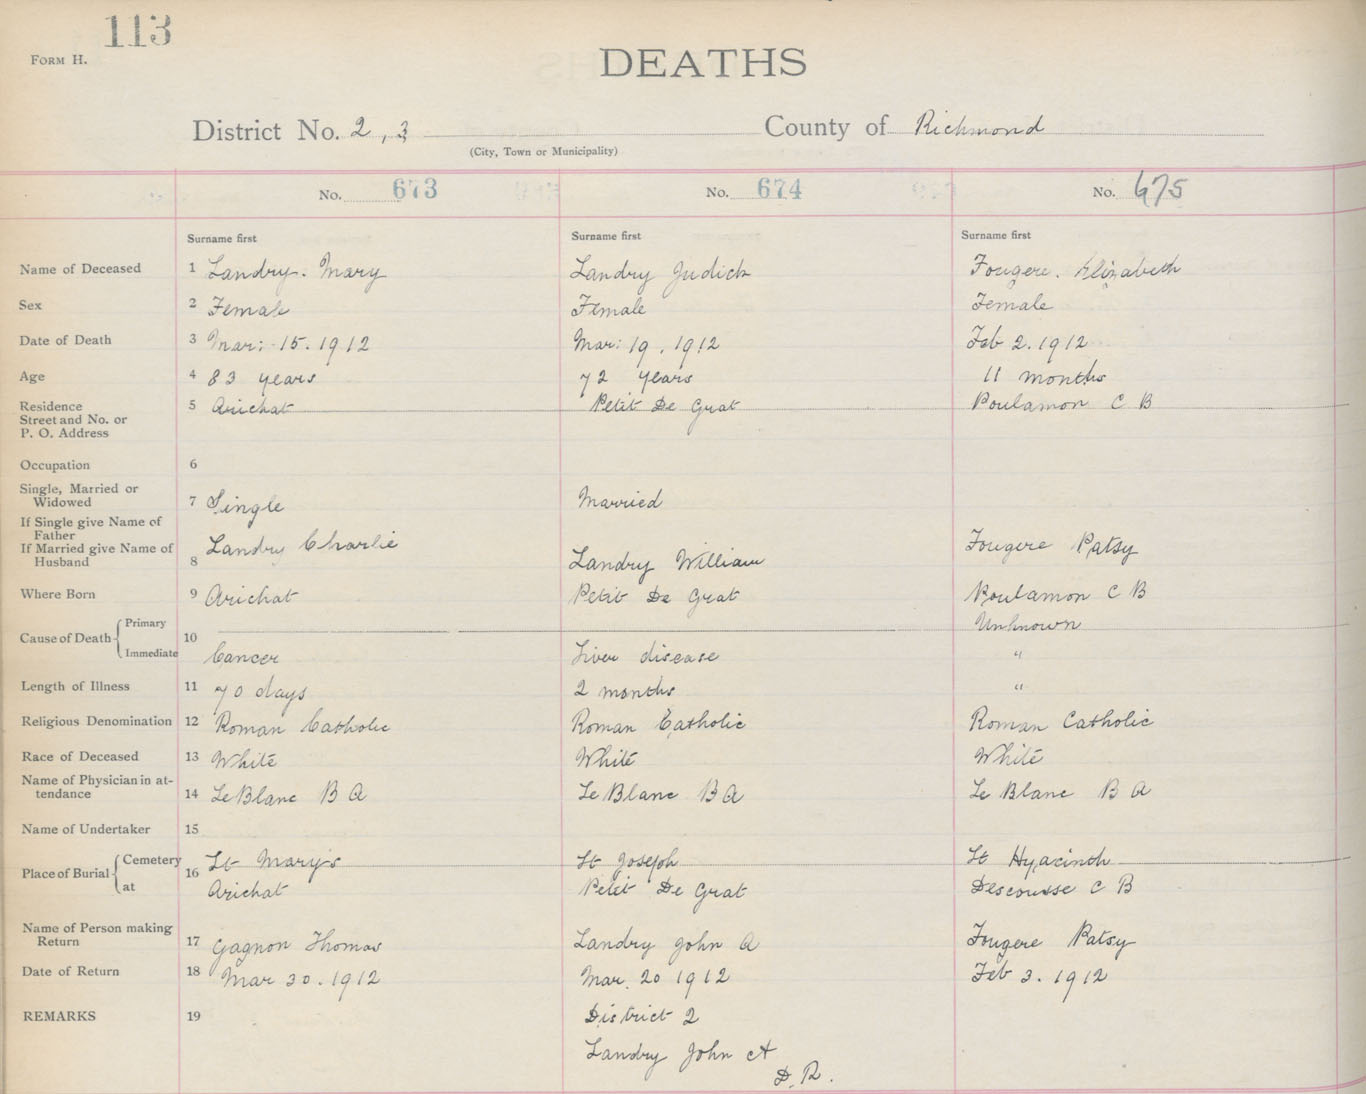 113
FORM H.
DEATHS
District No. 2, 3 County of Richmond
(City, Town or Municipality)
No. 673 No. 674 No. 675
Surname first Surname first Surname first
Name of Deceased 1 Landry. Mary Landry Judick Fougere. Elizabeth
Sex 2 Female Female Female
Date of Death 3 Mar: 15. 1912 Mar: 19. 1912 Feb 2. 1912
Age 4 83 years 72 years 11 months
Residence 5 Arichat Petit De Grat Poulamon C B
Street and No. or
P. O. Address
Occupation 6
Single, Married or
Widowed 7 Single Married
If Single give Name of
Father Landry Charlie Fougere Patsy
If Married give Name of
Husband 8 Landry William
Where Born 9 Arichat Petit De Grat Poulamon C B
Cause of Death 10 Primary Unknown
Immediate Cancer Liver disease "
Length of Illness 11 70 days 2 months "
Religious Denomination 12 Roman Catholic Roman Catholic Roman Catholic
Race of Deceased 13 White White White
Name of Physician in at-
tendance 14 LeBlanc B A Le Blanc B A Le Blanc B A
Name of Undertaker 15
Place of Burial 16 Cemetery St Mary's St Joseph St Hyacinth
at Arichat Petit De Grat Descousse C B
Name of Person making
Return 17 Gagnon Thomas Landry John A Fougere Patsy
Date of Return 18 Mar 30. 1912 Mar. 20 1912 Feb 3. 1912
REMARKS 19 District 2
Landry John A
D. R.